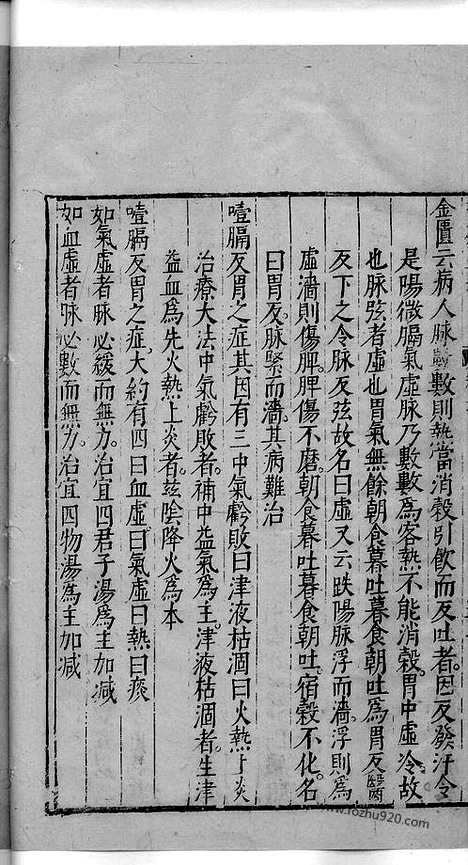 金匱云病人脉數數則熱當消穀引飲而反吐者因反發汗令
是陽微膈氣虛脉乃數數為客熱不能消穀胃中虛冷故
也脉弦者虛也胃氣無餘朝食暮吐暮食朝吐為胃反醫
反下之令脉反弦故名曰虛又云趺陽脉浮而濇浮則為
虛濇則傷脾脾傷不磨朝食暮吐暮食朝吐宿穀不化名
曰胃反脉緊而濇其病難治
噎膈反胃之症其因有三中氣虧敗曰津液枯涸曰火熱上炎
治療大法中氣虧敗者補中益氣為主津液枯涸者生津
益血為先火熱上炎者玆陰降火為本
噎膈反胃之症大約有四曰血虛曰氣虛曰熱曰痰
如氣虛者脉必緩而無力治宜四君子湯為主加減
如血虛者脉必數而無力治宜四物湯為主加减
www.fozhu920.com